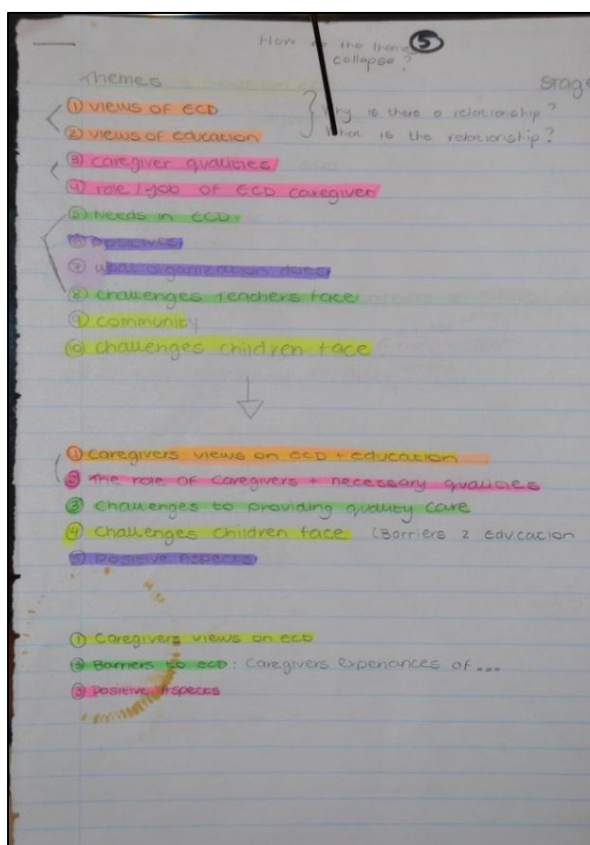 How do the themes ⑤
collapse?
Themes
stage
① views of ECD
Why is there a relationship?
② views of education
What is the relationship?
③ caregiver qualities
④ role / job of ECD caregiver
⑤ Needs in ECD
⑥ positives
⑦ what organization does
⑧ challenges Teachers face
⑨ community
⑩ challenges children face
① caregivers views on ECD + education
② The role of caregivers + necessary qualities
③ challenges to providing quality care
④ challenges children face (Barriers 2 Education
⑤ Positive Aspects
① Caregivers views on ECD
② Barriers to ECD: Caregivers experiances of ...
③ Positive Aspects